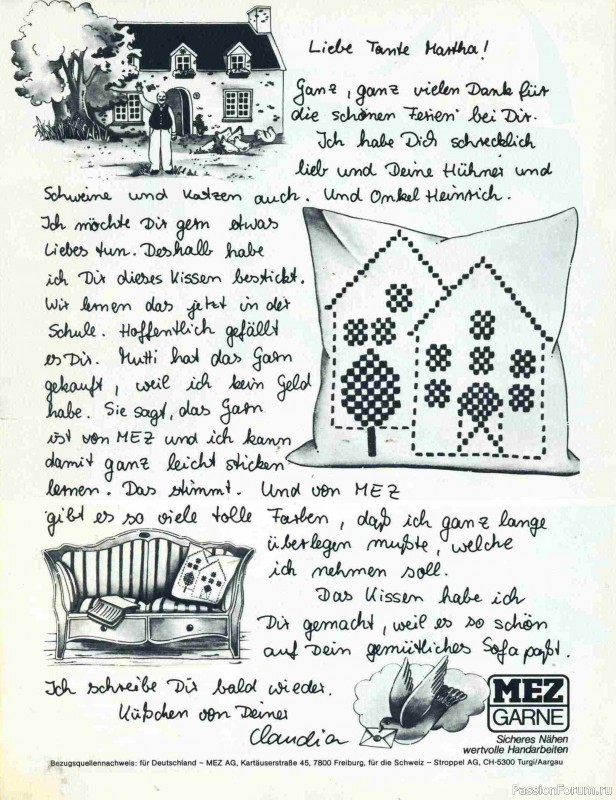 Liebe Tante Martha!
Ganz, ganz vielen Dank für
die schönen Ferien bei Dir.
Ich habe Dich schrecklich
lieb und Deine Hühner und
Schweine und Katzen auch. Und Onkel Heinrich.
Ich möchte Dir gern etwas
Liebes tun. Deshalb habe
ich Dir dieses Kissen bestickt.
Wir lernen das jetzt in der
Schule. Hoffentlich gefällt
es Dir. Mutti hat das Garn
gekauft, weil ich kein Geld
habe. Sie sagt, das Garn
ist von MEZ und ich kann
damit ganz leicht sticken
lernen. Das stimmt. Und von MEZ
gibt es so viele tolle Farben, daß ich ganz lange
überlegen mußte, welche
ich nehmen soll.
Das Kissen habe ich
Dir gemacht, weil es so schön
auf Dein gemütliches Sofa paßt.
Ich schreibe Dir bald wieder.
Küßchen von Deiner
Claudia
MEZ
GARNE
Sicheres Nähen
wertvolle Handarbeiten
Bezugsquellennachweis: für Deutschland – MEZ AG, Kartäuserstraße 45, 7800 Freiburg, für die Schweiz – Stroppel AG, CH-5300 Turgi/Aargau
PassionForum.ru